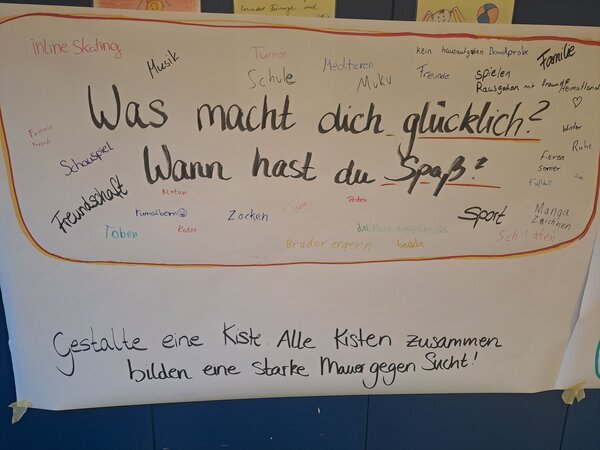 inline Skating
Musik
Turnen
Schule
Meditieren
Muku
kein hausaufgaben Bandprobe
Freunde
spielen
Rausgehen mit freunde
Familie
Heimatland
Was macht dich glücklich?
Wann hast du Spaß?
Winter
Ruhe
fieren
Somer
Fußball
Schauspiel
Freundschaft
rumalbern
Toben
Kater
Zocken
Bruder ergern
basteln
Sport
Manga
Zeichnen
Schlafen
Gestalte eine Kiste. Alle Kisten zusammen
bilden eine starke Mauer gegen Sucht!